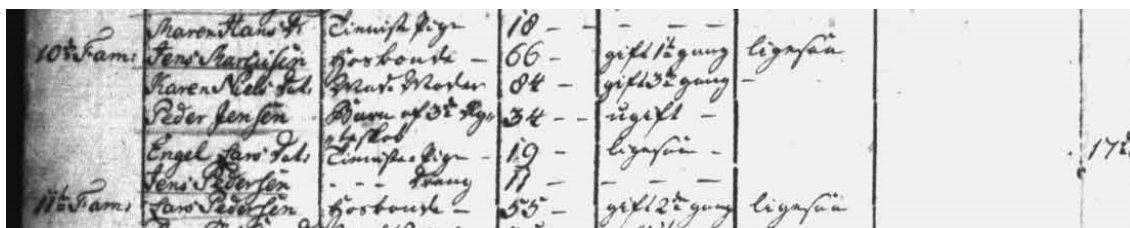 Maren Hans D. Tieniste Pige 18 - - - -
10de Fam: Jens Marcusen Hosbonde - 66 - gift 1te gang ligesaa
Karen Niels Dat: Mad-Moder 84 - gift 3de gang -
Peder Jensen Barn af 3de Æg= 34 - ugift -
teskab
Engel Lars Dat: Tieniste-Pige - 19 - ligesaa -
Jens Pedersen - - - Dreng 11 - - - -
11te Fam: Lars Pedersen Hosbonde - 55 - gift 2de gang ligesaa